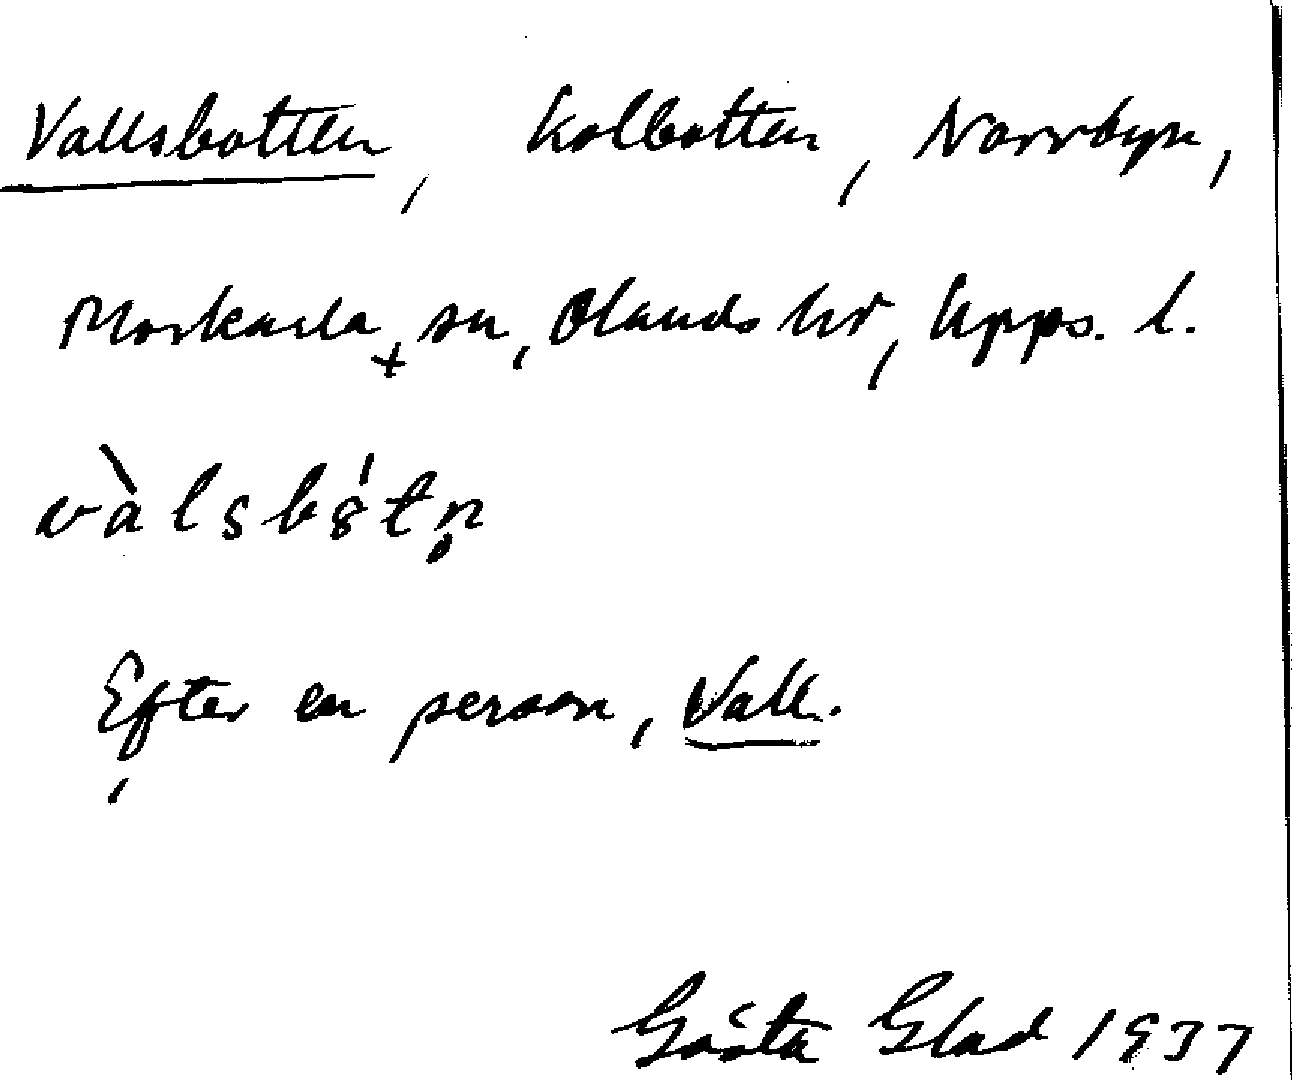 Vallsbotten, Kolbotten, Norrbyn,
Morkarla + sn, Olands hd, Upps. l.
vàlsbòtn̥
Efter en person, Vall.
Gösta Glad 1937